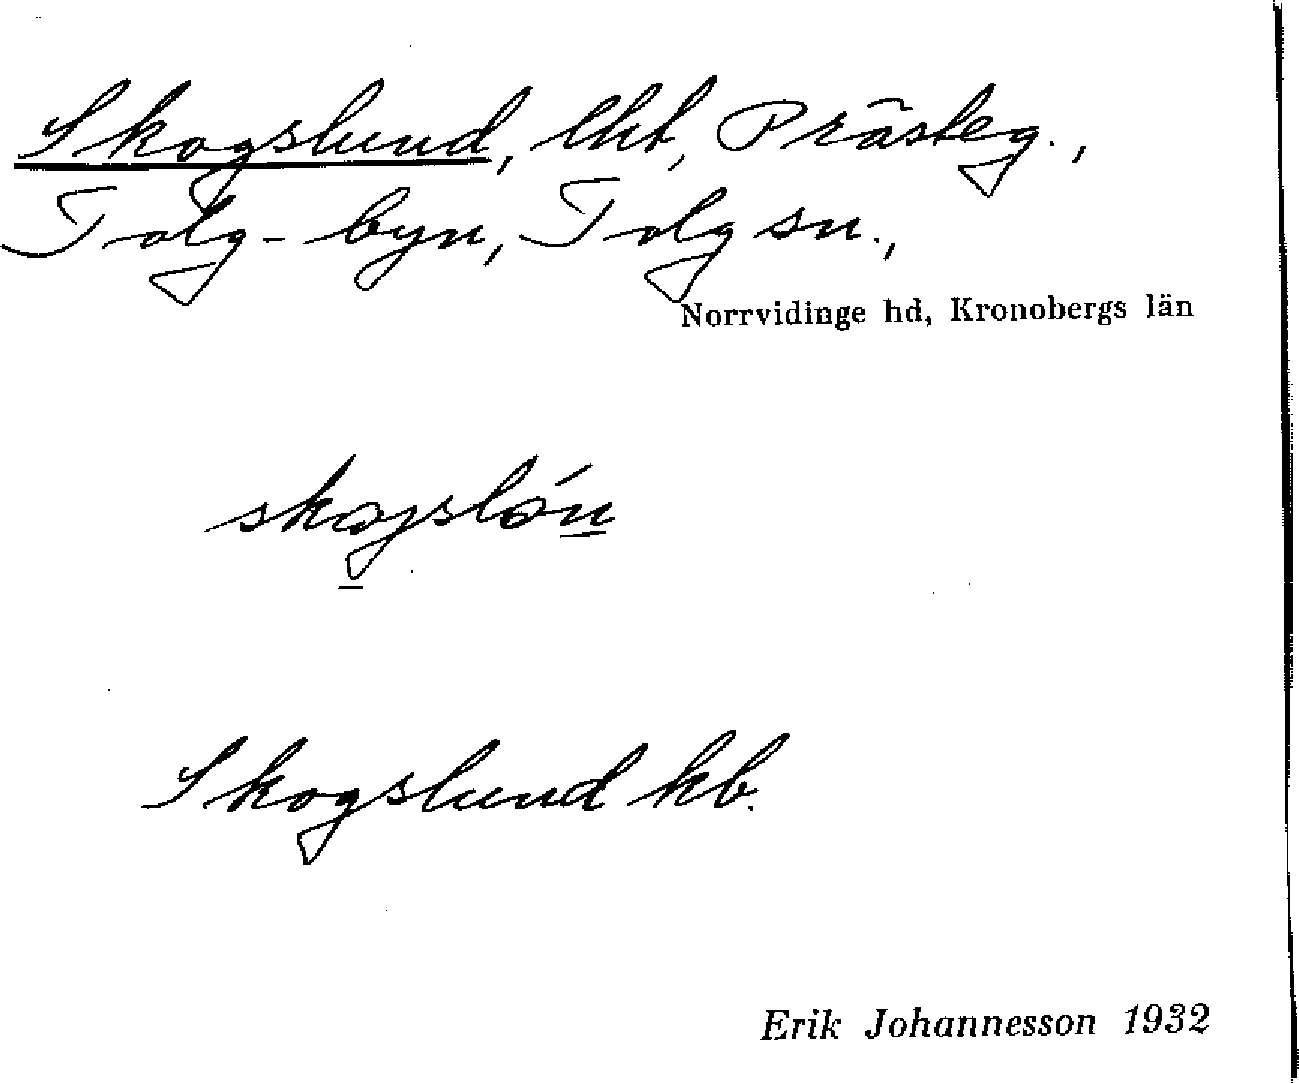 Skogslund, lht, Prästeg.,
Tolg-byn, Tolg sn.,
Norrvidinge hd, Kronobergs län
skogslón
Skogslund kb.
Erik Johannesson 1932